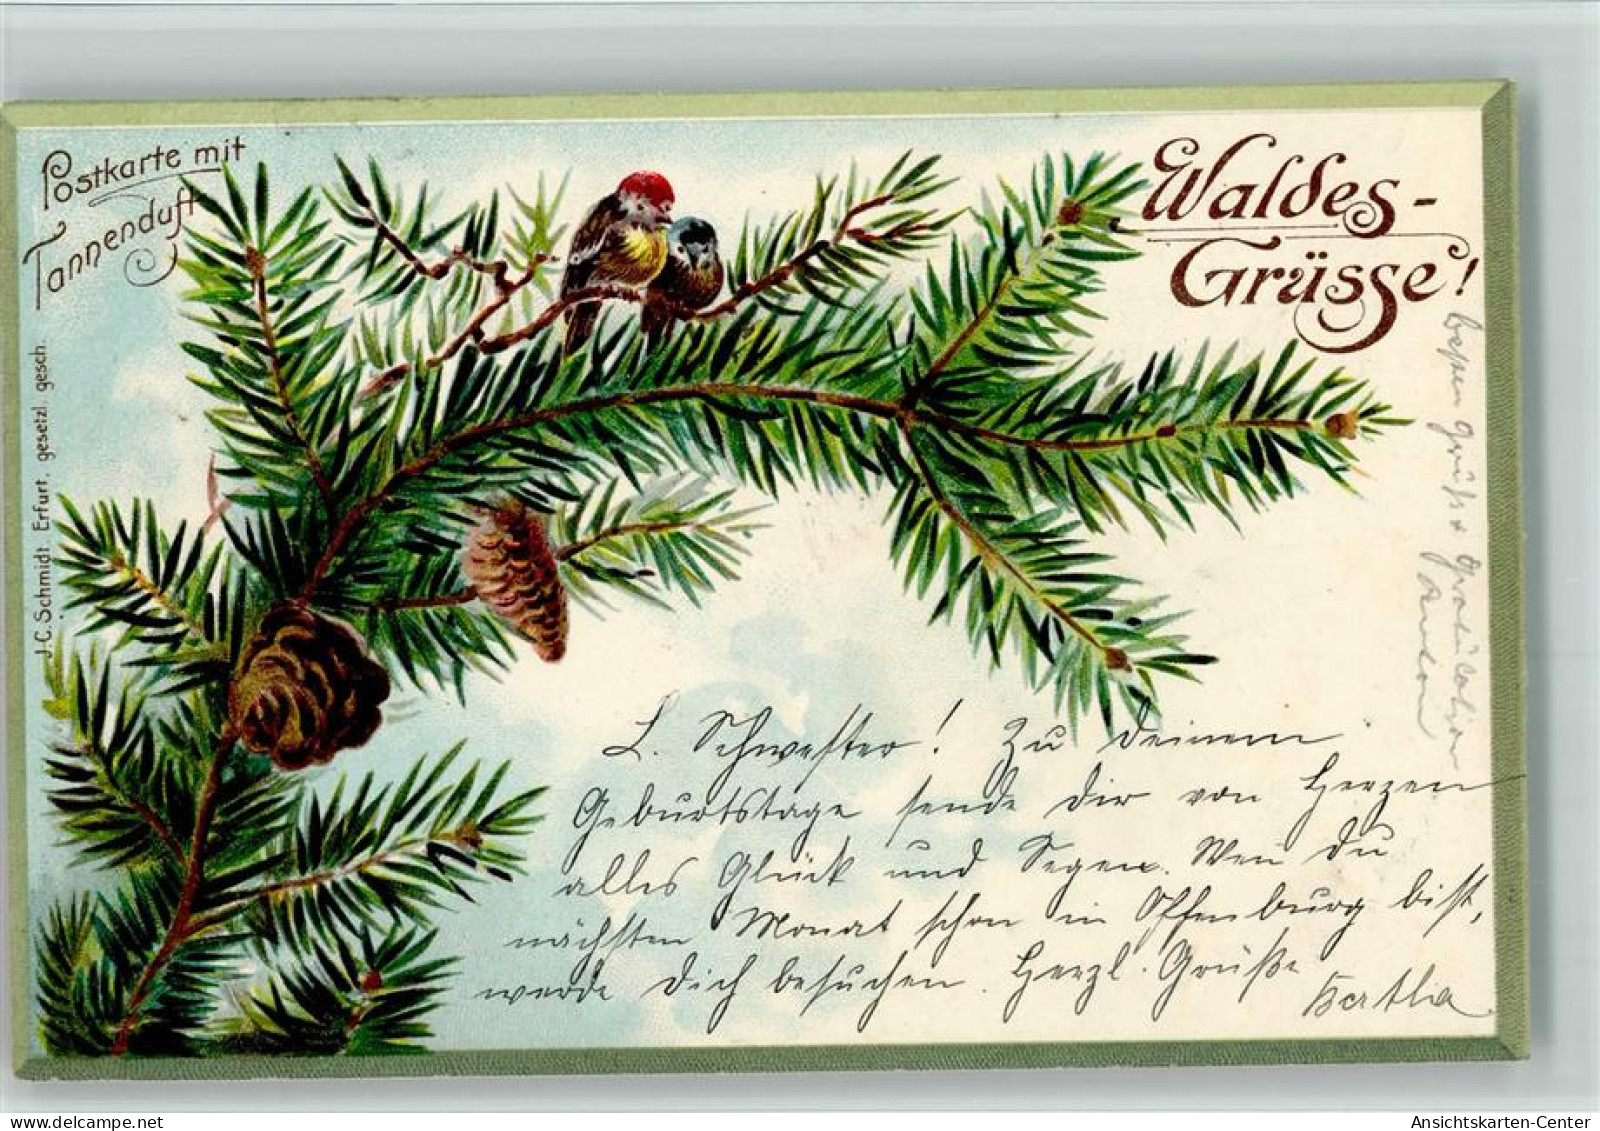 Postkarte mit
Tannenduft
Waldes-
Grüsse!
J. C. Schmidt. Erfurt. gesetzl. gesch.
L. Schwester! Zu Deinem
Geburtstage sende Dir von Herzen
alles Glück und Segen. Wen Du
nächsten Monat schon in Offenburg bist,
werde Dich besuchen. Herzl. Grüße
Bertha
besten Gruß + Gratulation
Ansichtskarten-Center